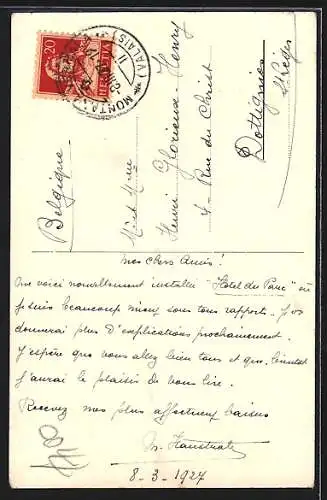 20
HELVETIA
MONTANA
(VALAIS)
Mr et Mme
Henri Glorieux-Henry
4 - Rue du Christ
Dottignies
St Léger
Belgique
Mes chers Amis!
Me voici nouvellement installée "Hôtel du Parc" où
je suis beaucoup mieux sous tous rapports. Je vous
donnerai plus d'explications prochainement.
J'espère que vous allez bien tous et que bientôt
j'aurai le plaisir de vous lire.
Recevez mes plus affectueux baisers
8-3-1927